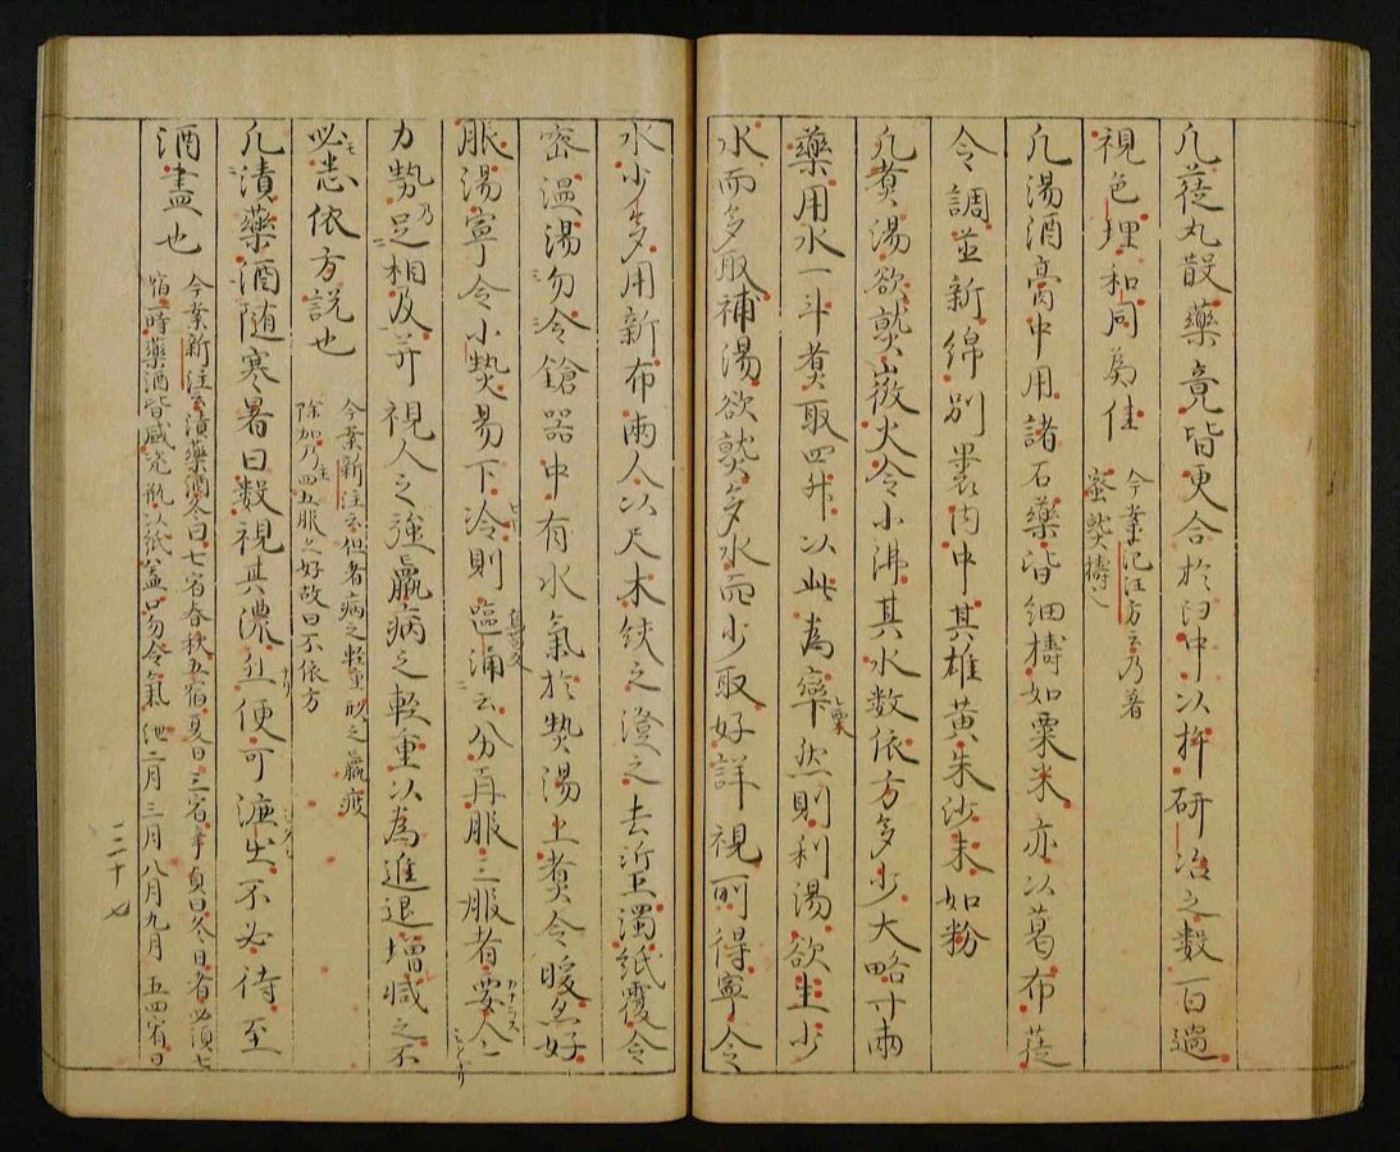 凡蓰丸散藥竟皆更合於臼中以杵研冶之數百遍
視色理和同爲佳
今案范汪方云乃着
蜜熬擣之
凡湯酒膏中用諸石藥皆細擣如粟米亦以葛布蓰
令調並新綿別裹内中其雄黄朱沙末如粉
凡煮湯欲熟微火令小沸其水数依方多少大略寸兩
藥用水一斗煮取四升以此為率然則利湯欲生少
水而多取補湯欲熟多水而少取好詳視所得寧令
水少多用新布兩人以尺木絞之澄之去渥濁紙覆令
密温湯勿令鎗器中有水氣於熱湯上煮令暖忽好
服湯寧令小熱易下冷則嘔涌云分再服三服者要令
力勢足相及并視人之強羸病之輕重以為進退增减之不
必悉依方説也
今案新注云但者病之輕重形之羸疲
除加乃四五服之好故曰不依方
凡漬藥酒随寒暑日數視其濃烈便可漉出不必待至
酒盡也
今案新注云漬藥酒冬日七宿春秋五宿夏日三宿
宿一時藥酒皆盛瓷瓶以紙盖口勿令氣 二月三月八月九月五四宿日
二十七